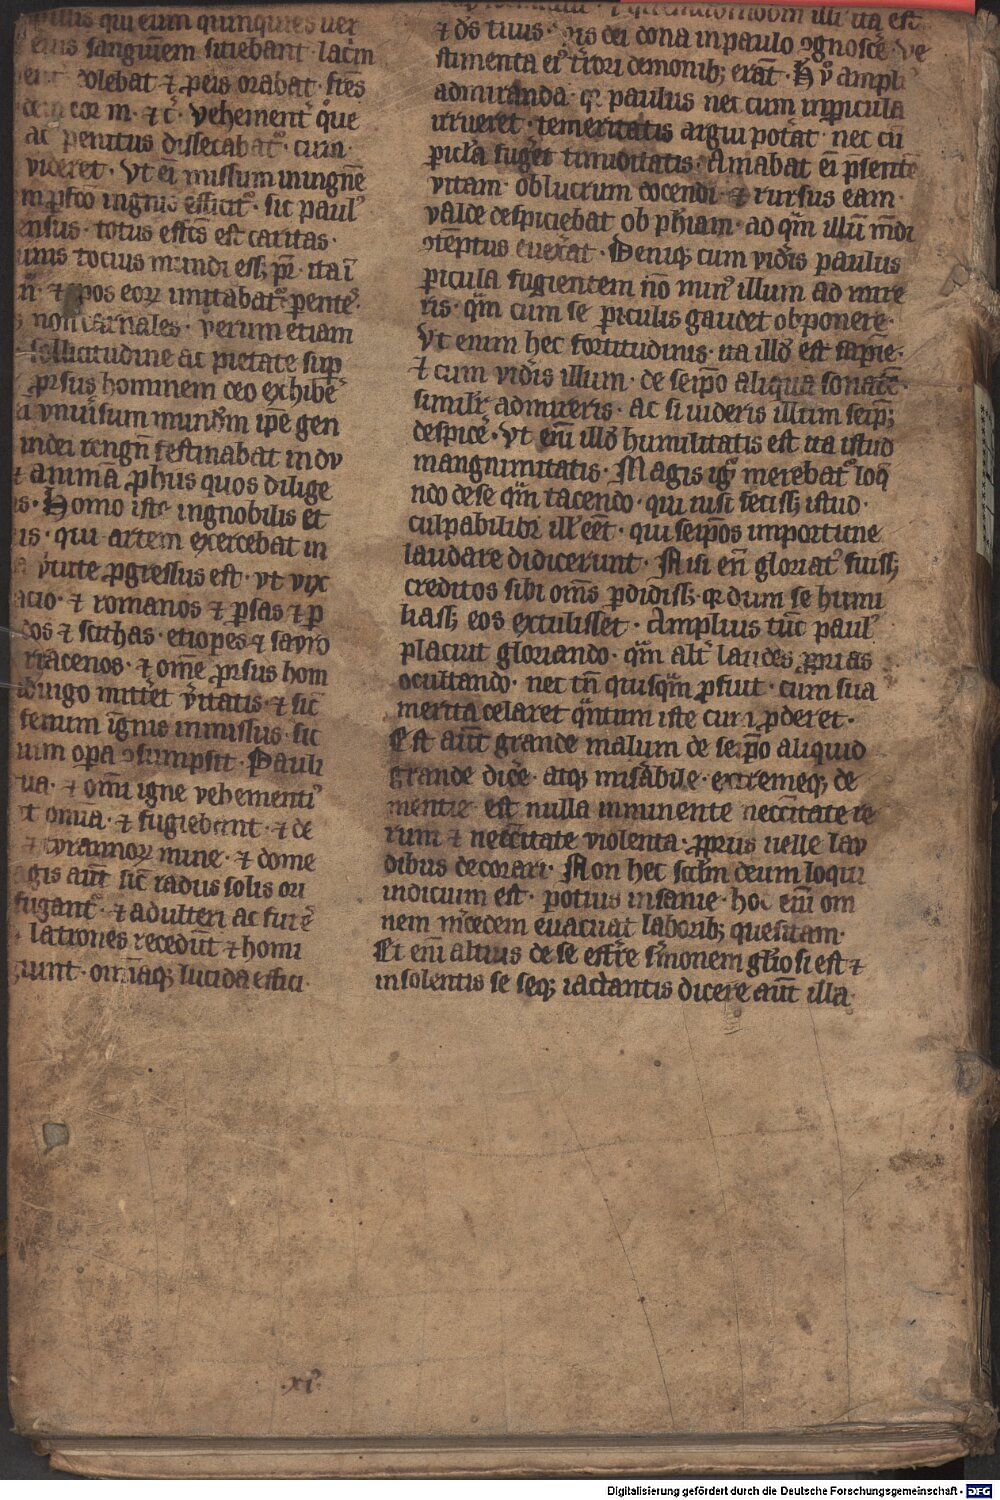 qui eum quinquies uer
eius sanguiem sitiebant lacm
dolebat ⁊ ꝓeis orabat · fr̄es
cor m · ⁊ c̄ · vehement̓ q̄ue
ac penitus dissecabat᷑ · cum ·
videret · vt eī missum in ingnē
ingnis effic̄it᷑ · sic paul᷒
ensus · totus effc̄s est caritas ·
tocius mundi ess; pr̄ · ita ī
⁊ ip̄os eoꝝ imitabat᷑
non carnales · verum etiam
sollicitudine ac pietate sup
ꝓrsus hominem deo exhibe᷑
vniu̓sum mundm ip̄e gen
dei rengn̄ festinabat in du
⁊ animā ꝓbius quos dilige
Homo iste ingnobilis et
is · qui artem excercebat in
v̓tute ꝓgressus est · vt vix
acio · ⁊ romanos ⁊ ꝑsas ⁊ ꝑ
dos ⁊ scithas · etiopes ⁊ sauro
rracenos · ⁊ om̄e ꝓrsus hom
mitt̓et v̓itatis ⁊ sic̄
fenum īgnis inmissus · sic
op̄a ꝯsumpsit · Pauli
ua · ⁊ om̄i igne vehementi᷒
t omīa · ⁊ fugiebant · ⁊ de
⁊ tyrannoꝝ mine · ⁊ dome
gis aūt sic̄ radus solis ou
fugant᷑ · ⁊ adulteri ac fur̄e
latrones recedūt ⁊ homi
omīaqꝫ lucida effici ·
illi ita est
⁊ ds̄ tuus · ꝯis dei dona in paulo ꝯgnosce᷑ · ve
stimenta ei᷒ t̓rori demonibꝫ erāt · H̄ v̊ ampli᷒
admiranda · qꝛ paulus nec cum in ꝑicula
irrueret · temeritatis argui pot̓at · nec cū
ꝑicl̄a fug̓et timiditatis · Amabat eī p̄sentē
vitam · ob lucrum docendi · ⁊ rursus eam ·
valde despiciebat ob ph̄iam · ad qm̄ illū m̄di
ꝯtēptus euex̓at · Deniqꝫ cum vid̓is paulus
ꝑicula fugientem nō min᷒ illum ad mire
ris · qm̄ cum se ꝑiculis gaudet obponere ·
Vt enim hec fortitudinis · ita illd̓ est sapīe ·
⁊ cum vid̓is illum · de seip̄o aliqua sonāte ·
simil̓r admireris · ac si uideris illum seip̄ꝫ
despice᷑ · Vt enī illd̓ humilitatis est ita istud
mangnimitatis · Magis ig̓ merebat᷑ loq̄
ndo de se qm̄ tacendo · qui nisi feciss; istud ·
culpabilior ill̓ eēt · qui seip̄os importune
laudare didicerunt · Nisi en̄ gloriat᷒ fuiss;
creditos sibi om̄s ꝑdidiss; · qꝛ dum se humi
liass; eos extulisset · Amplius tūc paul᷒
placuit gloriando · qm̄ alt̓ laudes ꝓprias
ocultando · nec tn̄ quisqm̄ ꝓfuit · cum sua
merita celaret qn̄tum iste cur ꝓderet ·
Est aūt grande malum de seip̄o aliquid
grande dic̓e · atqꝫ mis̓abile · extremeqꝫ de
mentie est nulla imminente nec̄citate re
rum ⁊ nec̄citate violenta · ꝓprius uelle lau
dibus decorari · Non hec sc̄dm deum loqui
indicium est · potius insanie · hoc enī om
nem m̓cedem euacuat laboribꝫ quesitam ·
Et enī altius de se eff̓re s̓monem gl̓iosi est ⁊
insolentis se seqꝫ iactantis dicere aūt illa
·xi᷒·
Digitalisierung gefördert durch die Deutsche Forschungsgemeinschaft · DFG